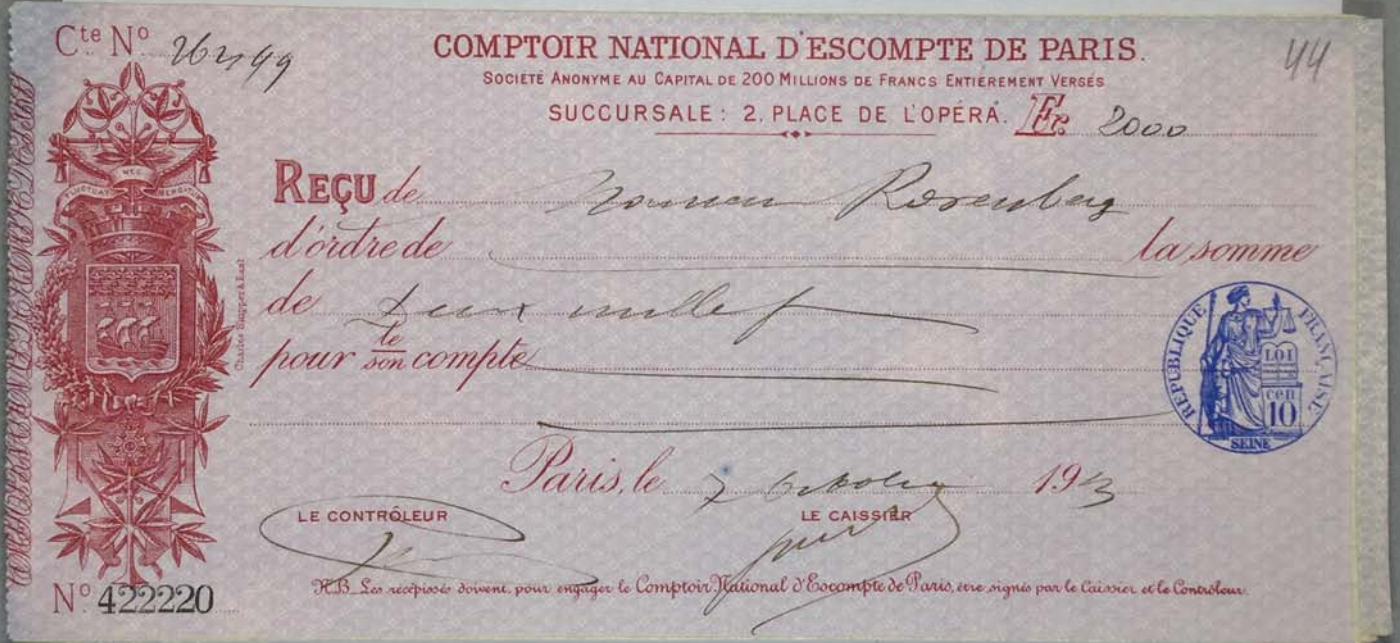 Cte No 26799
COMPTOIR NATIONAL D'ESCOMPTE DE PARIS.
44
SOCIÉTÉ ANONYME AU CAPITAL DE 200 MILLIONS DE FRANCS ENTIÈREMENT VERSÉS
SUCCURSALE : 2. PLACE DE L'OPÉRA. Fr. 2000
FLUCTUAT NEC MERGITUR
REÇU de Rosenberg
d'ordre de la somme
de deux mille f
pour le/son compte
Charles Skipper & East
RÉPUBLIQUE FRANÇAISE
LOI
CEN
10
SEINE
Paris, le 7 octobre 1913
LE CONTRÔLEUR LE CAISSIER
No 422220
NB_Les récépissés doivent, pour engager le Comptoir National d'Escompte de Paris, être signés par le Caissier et le Contrôleur.